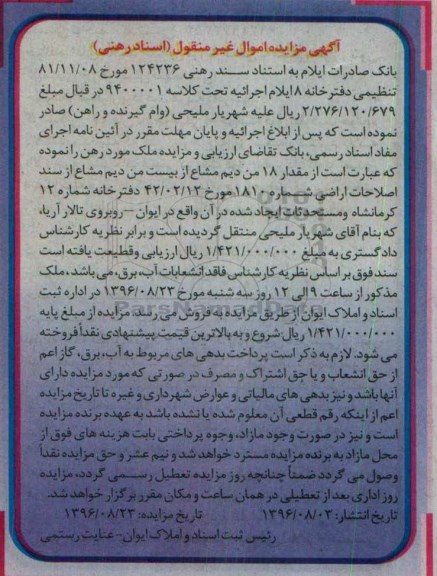 آگهی مزایده اموال غیر منقول (اسناد رهنی)
بانک صادرات ایلام به استناد سند رهنی ۱۲۴۲۳۶ مورخ ۸۱/۱۱/۰۸
تنظیمی دفترخانه ۸ ایلام اجرائیه تحت کلاسه ۹۴۰۰۰۰۱ در قبال مبلغ
۲/۲۷۶/۱۲۰/۶۷۹ ریال علیه شهریار ملیحی (وام گیرنده و راهن) صادر
نموده است که پس از ابلاغ اجرائیه و پایان مهلت مقرر در آئین نامه اجرای
مفاد اسناد رسمی، بانک تقاضای ارزیابی و مزایده ملک مورد رهن را نموده
که عبارت است از مقدار ۱۸ من دیم مشاع از بیست من دیم مشاع از سند
اصلاحات اراضی شماره ۱۸۱۰ مورخ ۴۲/۰۲/۱۲ دفترخانه شماره ۱۲
کرمانشاه ومستحدثات ایجاد شده در آن واقع در ایوان – روبروی تالار آریا،
که بنام آقای شهریار ملیحی منتقل گردیده است و برابر نظریه کارشناس
دادگستری به مبلغ ۱/۴۲۱/۰۰۰/۰۰۰ ریال ارزیابی وقطیعت یافته است
سند فوق بر اساس نظریه کارشناس فاقد انشعابات آب، برق، می باشد، ملک
مذکور از ساعت ۹ الی ۱۲ روز سه شنبه مورخ ۱۳۹۶/۰۸/۲۳ در اداره ثبت
اسناد و املاک ایوان از طریق مزایده به فروش می رسد. مزایده از مبلغ پایه
۱/۴۲۱/۰۰۰/۰۰۰ ریال شروع و به بالاترین قیمت پیشنهادی نقداً فروخته
می شود. لازم به ذکر است پرداخت بدهی های مربوط به آب، برق، گاز اعم
از حق انشعاب و یا حق اشتراک و مصرف در صورتی که مورد مزایده دارای
آنها باشد و نیز بدهی های مالیاتی و عوارض شهرداری و غیره تا تاریخ مزایده
اعم از اینکه رقم قطعی آن معلوم شده یا نشده باشد به عهده برنده مزایده
است و نیز در صورت وجود مازاد، وجوه پرداختی بابت هزینه های فوق از
محل مازاد به برنده مزایده مسترد خواهد شد و نیم عشر و حق مزایده نقداً
وصول می گردد ضمناً چنانچه روز مزایده تعطیل رسمی گردد، مزایده
روز اداری بعد از تعطیلی در همان ساعت و مکان مقرر برگزار خواهد شد.
تاریخ انتشار: ۱۳۹۶/۰۸/۰۳ تاریخ مزایده: ۱۳۹۶/۰۸/۲۳
رئیس ثبت اسناد و املاک ایوان – عنایت رستمی